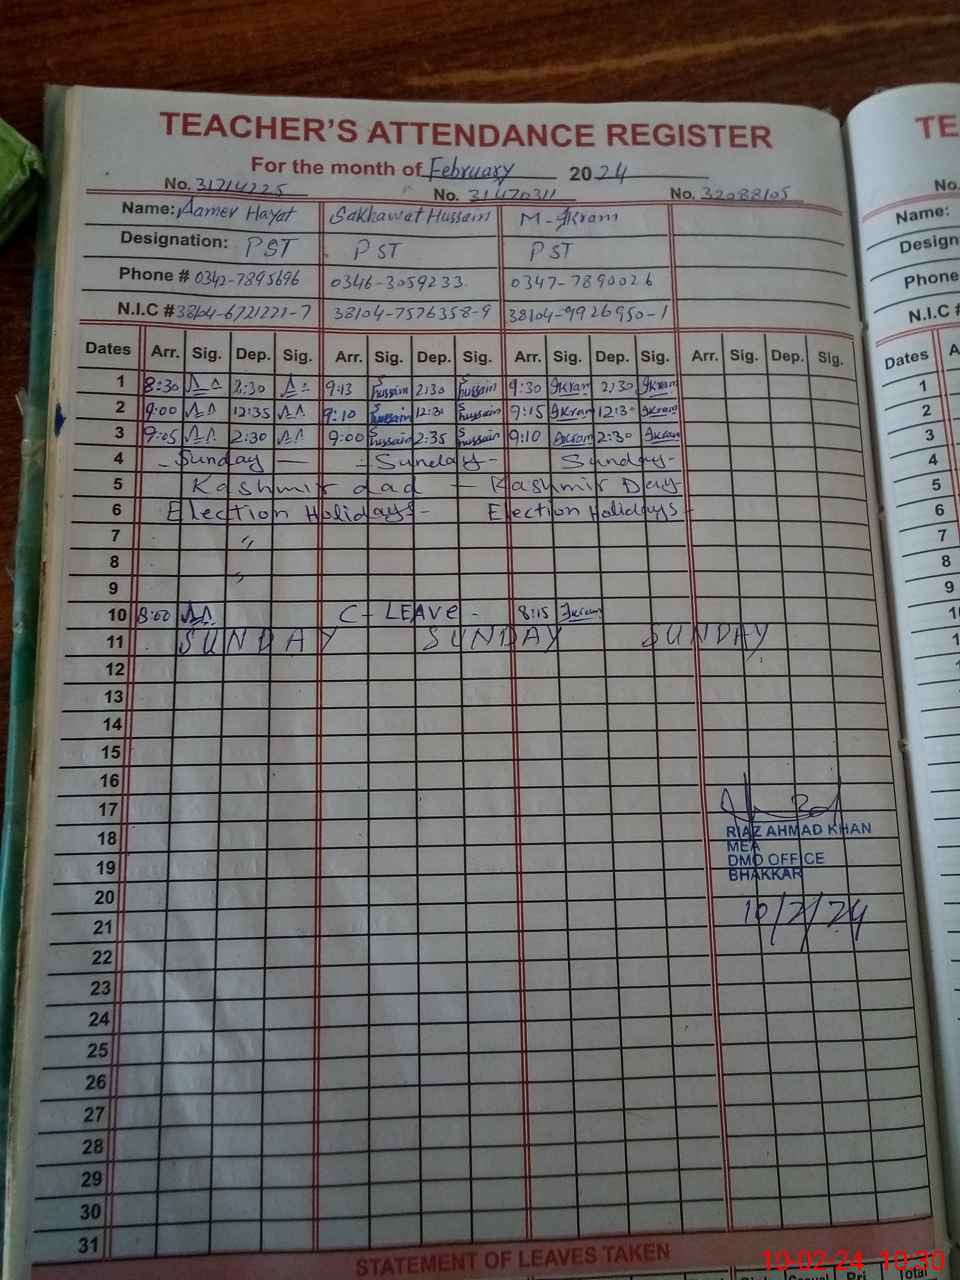 TEACHER'S ATTENDANCE REGISTER
For the month of February 2024
No. 31714225 No. 31470311 No. 32088105
Name: Aamer Hayat Sakhawat Hussain M-Ikram
Designation: PST PST PST
Phone # 0342-7895696 0346-3059233 0347-7890026
N.I.C # 38104-6721221-7 38104-7576358-9 38104-9926950-1
Dates Arr. Sig. Dep. Sig. Arr. Sig. Dep. Sig. Arr. Sig. Dep. Sig. Arr. Sig. Dep. Sig.
1 8:30 2:30 9:13 S hussain 2:30 S hussain 9:30 Ikram 2:30 Ikram
2 9:00 12:35 9:10 S hussain 12:30 S hussain 9:15 Ikram 12:30 Ikram
3 9:05 2:30 9:00 S hussain 2:35 S hussain 9:10 Ikram 2:30 Ikram
4 - Sunday - - Sunday - Sunday -
5 Kashmir dad - Kashmir Day
6 Election Holidays - Election Holidays -
7 "
8 "
9
10 8:00 C- LEAVE - 8:15 Ikram
11 SUNDAY SUNDAY SUNDAY
12
13
14
15
16
17
RIAZ AHMAD KHAN
18 MEA
DMO OFFICE
19 BHAKKAR
20
10/2/24
21
22
23
24
25
26
27
28
29
30
31
STATEMENT OF LEAVES TAKEN
10-02-24 10:30
Total
TE
No.
Name:
Design
Phone
N.I.C #
Dates A
1
2
3
4
5
6
7
8
9
10
11
12
13
14
15